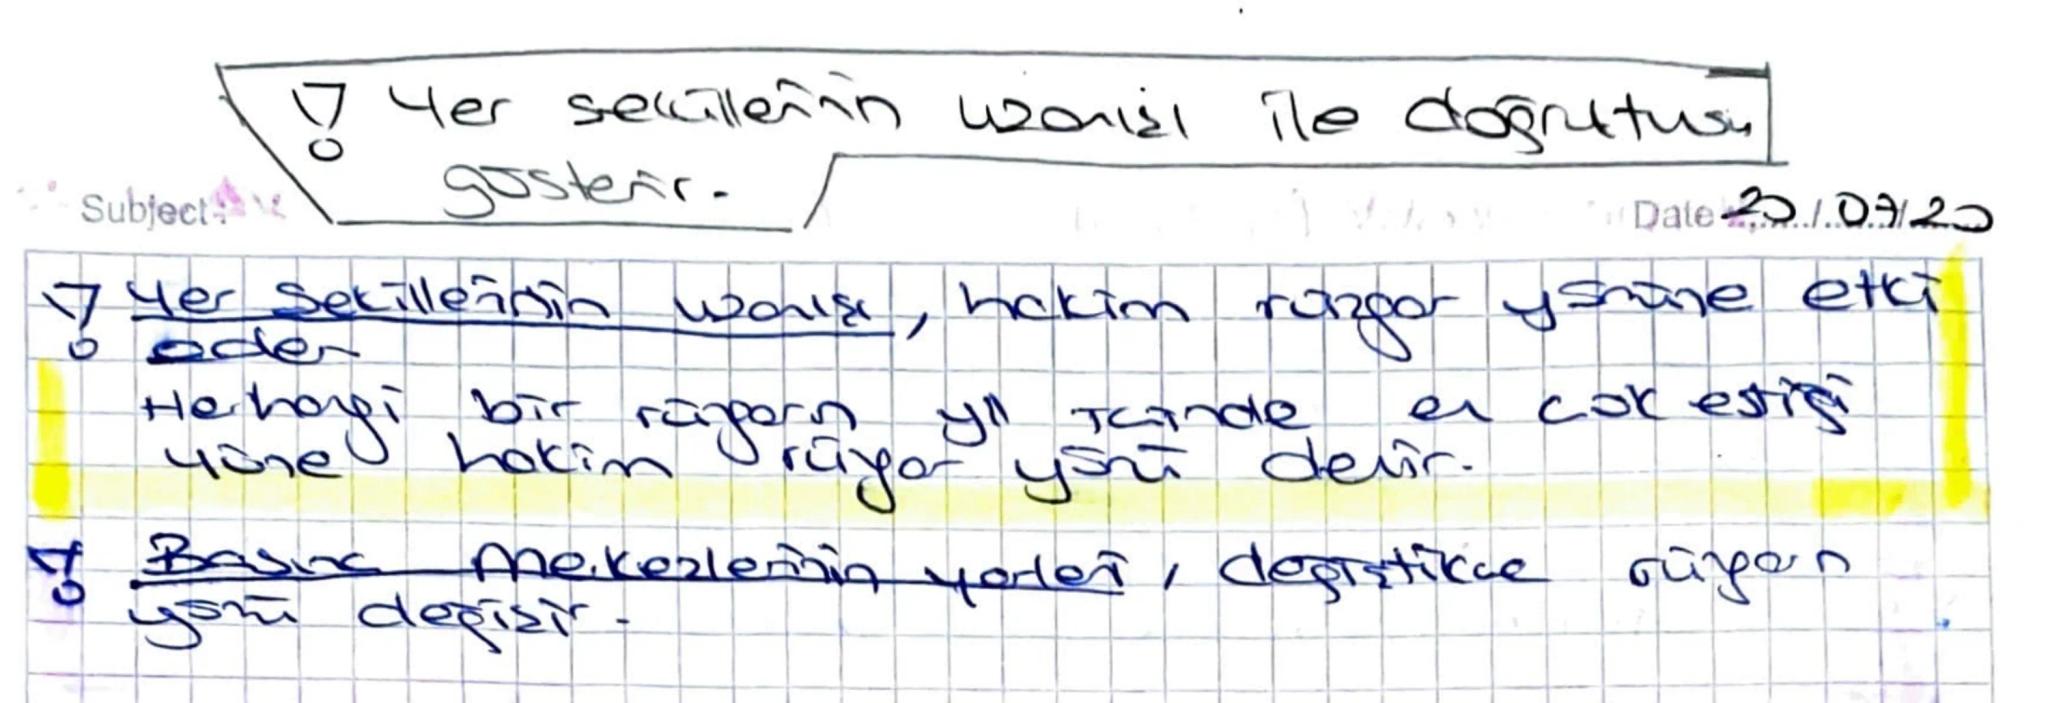 ! Yer şekillerinin uzanışı ile doğrultusu
gösterir.
Subject:
Date 20/07/20
! Yer Şekillerinin uzanışı, hakim rüzgar yönüne etki
eder
Herhangi bir rüzgarın yıl içinde en çok estiği
yöne hakim rüzgar yönü denir.
! Basınç Merkezlerinin yerleri, değiştikçe rüzgarın
yönü değişir.